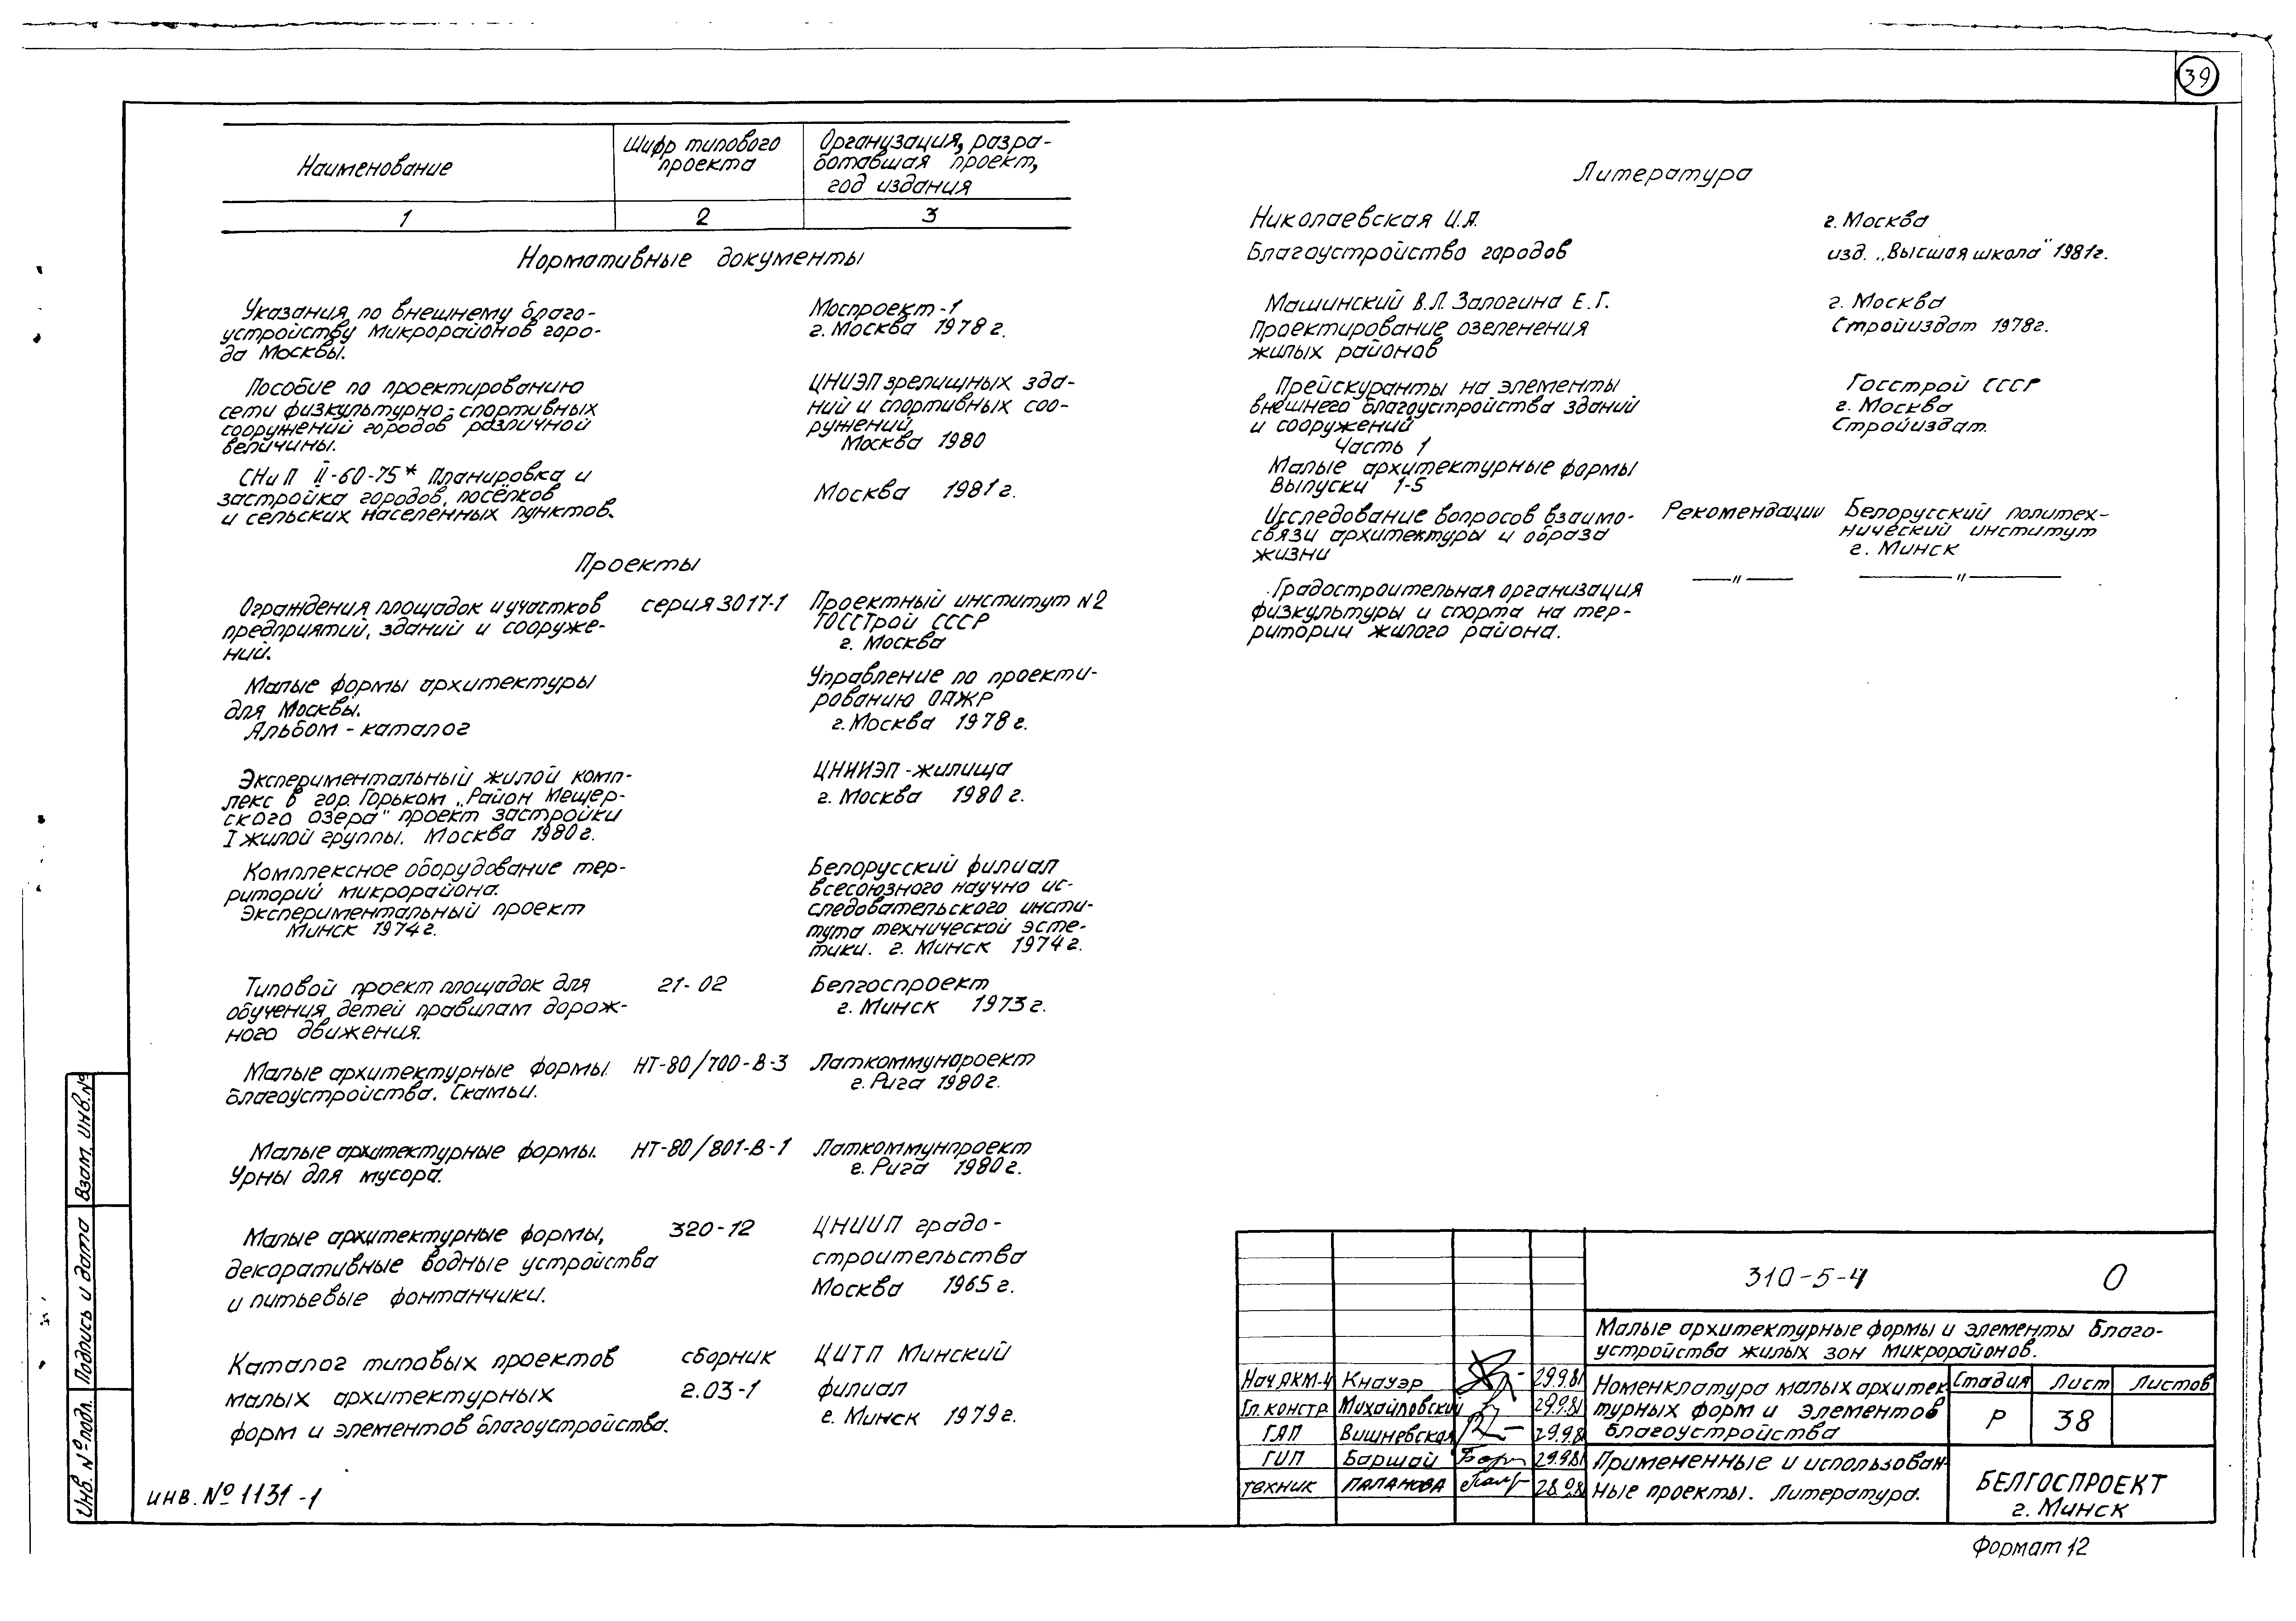 39
Наименование
Шифр типового
проекта
Организация, разра-
ботавшая проект,
год издания
1
2
3
Нормативные документы
Указания по внешнему благо-
устройству микрорайонов горо-
да Москвы.
Моспроект-1
г. Москва 1978 г.
Пособие по проектированию
сети физкультурно-спортивных
сооружений городов различной
величины.
ЦНИЭП зрелищных зда-
ний и спортивных соо-
ружений
Москва 1980
СНиП II-60-75* Планировка и
застройка городов, посёлков
и сельских населенных пунктов.
Москва 1981 г.
Проекты
Ограждения площадок и участков
предприятий, зданий и сооруже-
ний.
серия 3017-1
Проектный институт №2
ГОССТрой СССР
г. Москва
Малые формы архитектуры
для Москвы.
Альбом - каталог
Управление по проекти-
рованию ОПЖР
г. Москва 1978 г.
Экспериментальный жилой комп-
лекс в гор. Горьком „Район Мещер-
ского озера" проект застройки
I жилой группы. Москва 1980 г.
ЦНИИЭП - жилища
г. Москва 1980 г.
Комплексное оборудование тер-
риторий микрорайона.
Экспериментальный проект
Минск 1974 г.
Белорусский филиал
всесоюзного научно ис-
следовательского инсти-
тута технической эсте-
тики. г. Минск 1974 г.
Типовой проект площадок для
обучения детей правилам дорож-
ного движения.
21-02
Белгоспроект
г. Минск 1973 г.
Малые архитектурные формы
благоустройства. Скамьи.
НТ-80/700-В-3
Латкоммунароект
г. Рига 1980 г.
Малые архитектурные формы.
Урны для мусора.
НТ-80/801-В-1
Латкоммунпроект
г. Рига 1980 г.
Малые архитектурные формы,
декоративные водные устройства
и питьевые фонтанчики.
320-12
ЦНИИП градо-
строительства
Москва 1965 г.
Каталог типовых проектов
малых архитектурных
форм и элементов благоустройства.
сборник
2.03-1
ЦИТП Минский
филиал
г. Минск 1979 г.
Литература
Николаевская И.А.
Благоустройство городов
г. Москва
изд. „Высшая школа" 1981 г.
Машинский В.Л. Залогина Е.Г.
Проектирование озеленения
жилых районов
г. Москва
Стройиздат 1978 г.
Прейскуранты на элементы
внешнего благоустройства зданий
и сооружений
Часть 1
Малые архитектурные формы
Выпуски 1-5
Госстрой СССР
г. Москва
Стройиздат.
Исследование вопросов взаимо-
связи архитектуры и образа
жизни
Рекомендации
Белорусский политех-
нический институт
г. Минск
Градостроительная организация
физкультуры и спорта на тер-
ритории жилого района.
—"—
—"—
310-5-4 0
Малые архитектурные формы и элементы благо-
устройства жилых зон микрорайонов.
Нач АКМ-4 Кнауэр 29.9.81
Гл. констр. Михайловский 29.9.81
ГАП Вишневская 29.9.81
ГИП Баршай 29.9.81
техник Папанова
Номенклатура малых архитек
турных форм и элементов
благоустройства
Стадия Лист Листов
Р 38
Примененные и использован-
ные проекты. Литература.
БЕЛГОСПРОЕКТ
г. Минск
Формат 12
Взам. инв. №
Подпись и дата
Инв. № подл.
инв. № 1131-1